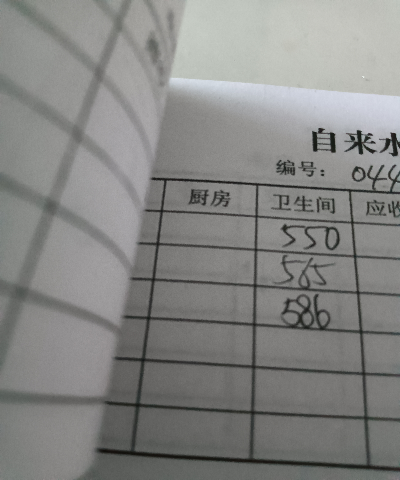 自来水
编号: 044
厨房 卫生间 应收
550
565
586